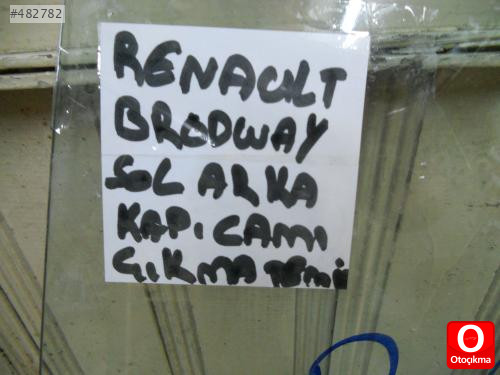 #482782
RENAULT
BRODWAY
SOL ARKA
KAPI CAMI
ÇIKMA TEMİZ
Otoçıkma